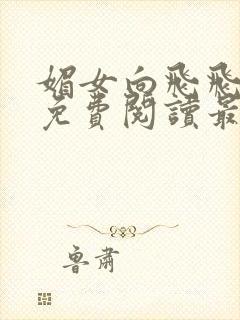 媚女向飛飛
免費閱讀最
魯肅